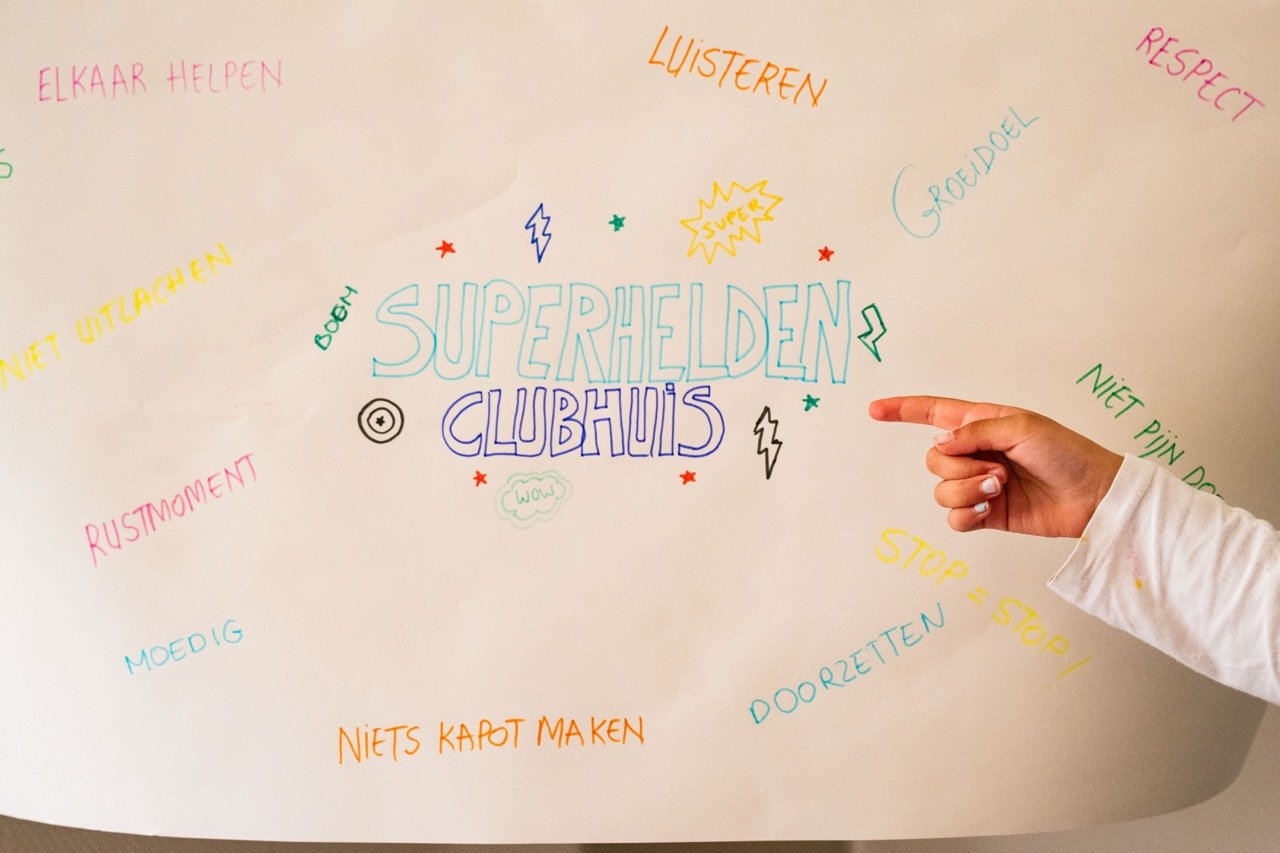 ELKAAR HELPEN
LUISTEREN
RESPECT
GROEIDOEL
SUPER
NIET UITLACHEN
BOEM
SUPERHELDEN
CLUBHUIS
NIET PIJN
WOW
RUSTMOMENT
STOP = STOP!
MOEDIG
DOORZETTEN
NIETS KAPOT MAKEN